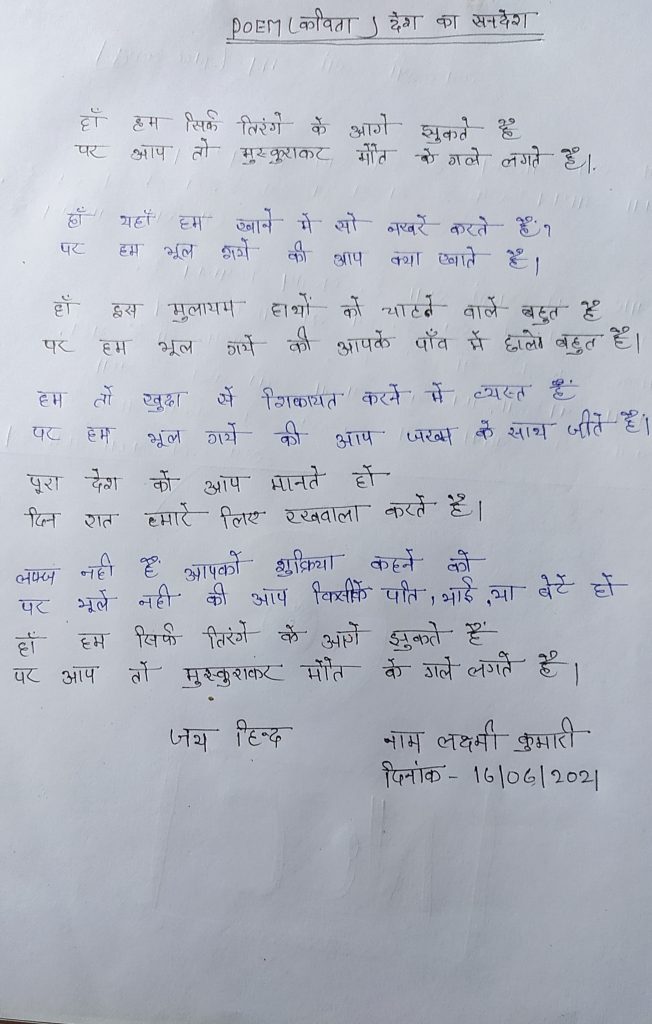 POEM (कविता) देश का सन्देश
हाँ हम सिर्फ तिरंगे के आगे झुकते हैं
पर आप तो मुस्कुराकर मौत के गले लगते हैं।
हाँ यहाँ हम खाने में सो नखरें करते हैं?
पर हम भूल गयें की आप क्या खाते हैं।
हाँ इस मुलायम हाथों को चाटने वाले बहुत हैं
पर हम भूल गयें की आपके पाँव में छाले बहुत हैं।
हम तो खुदा से शिकायत करने में व्यस्त हैं
पर हम भूल गयें की आप जख्म के साथ जीतें हैं।
पूरा देश को आप मानते हों
दिन रात हमारें लिए रखवाला करतें हैं।
लफ्ज नही हैं आपकों शुक्रिया कहनें कों
पर भूलें नही की आप किसीकें पति, भाई, या बेटें हों
हाँ हम सिर्फ तिरंगें के आगें झुकतें हैं
पर आप तों मुस्कुराकर मौत के गलें लगतें हैं।
जय हिन्द
नाम लक्ष्मी कुमारी
दिनांक - 16/06/2021